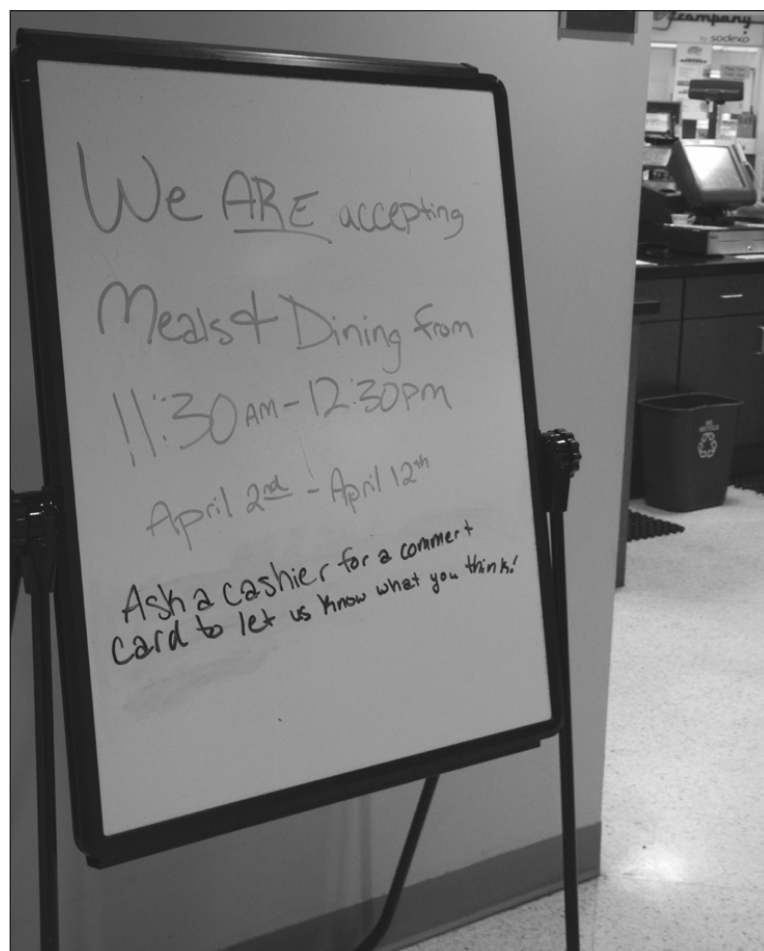 We ARE accepting
Meals & Dining from
11:30AM - 12:30PM
April 2nd - April 12th
Ask a cashier for a comment
card to let us know what you think!
company
by sodexo